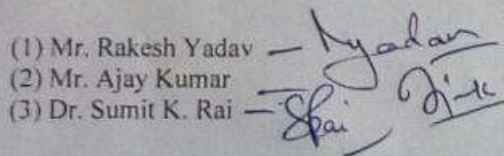 (1) Mr. Rakesh Yadav — Ryadav
(2) Mr. Ajay Kumar
(3) Dr. Sumit K. Rai — SRai